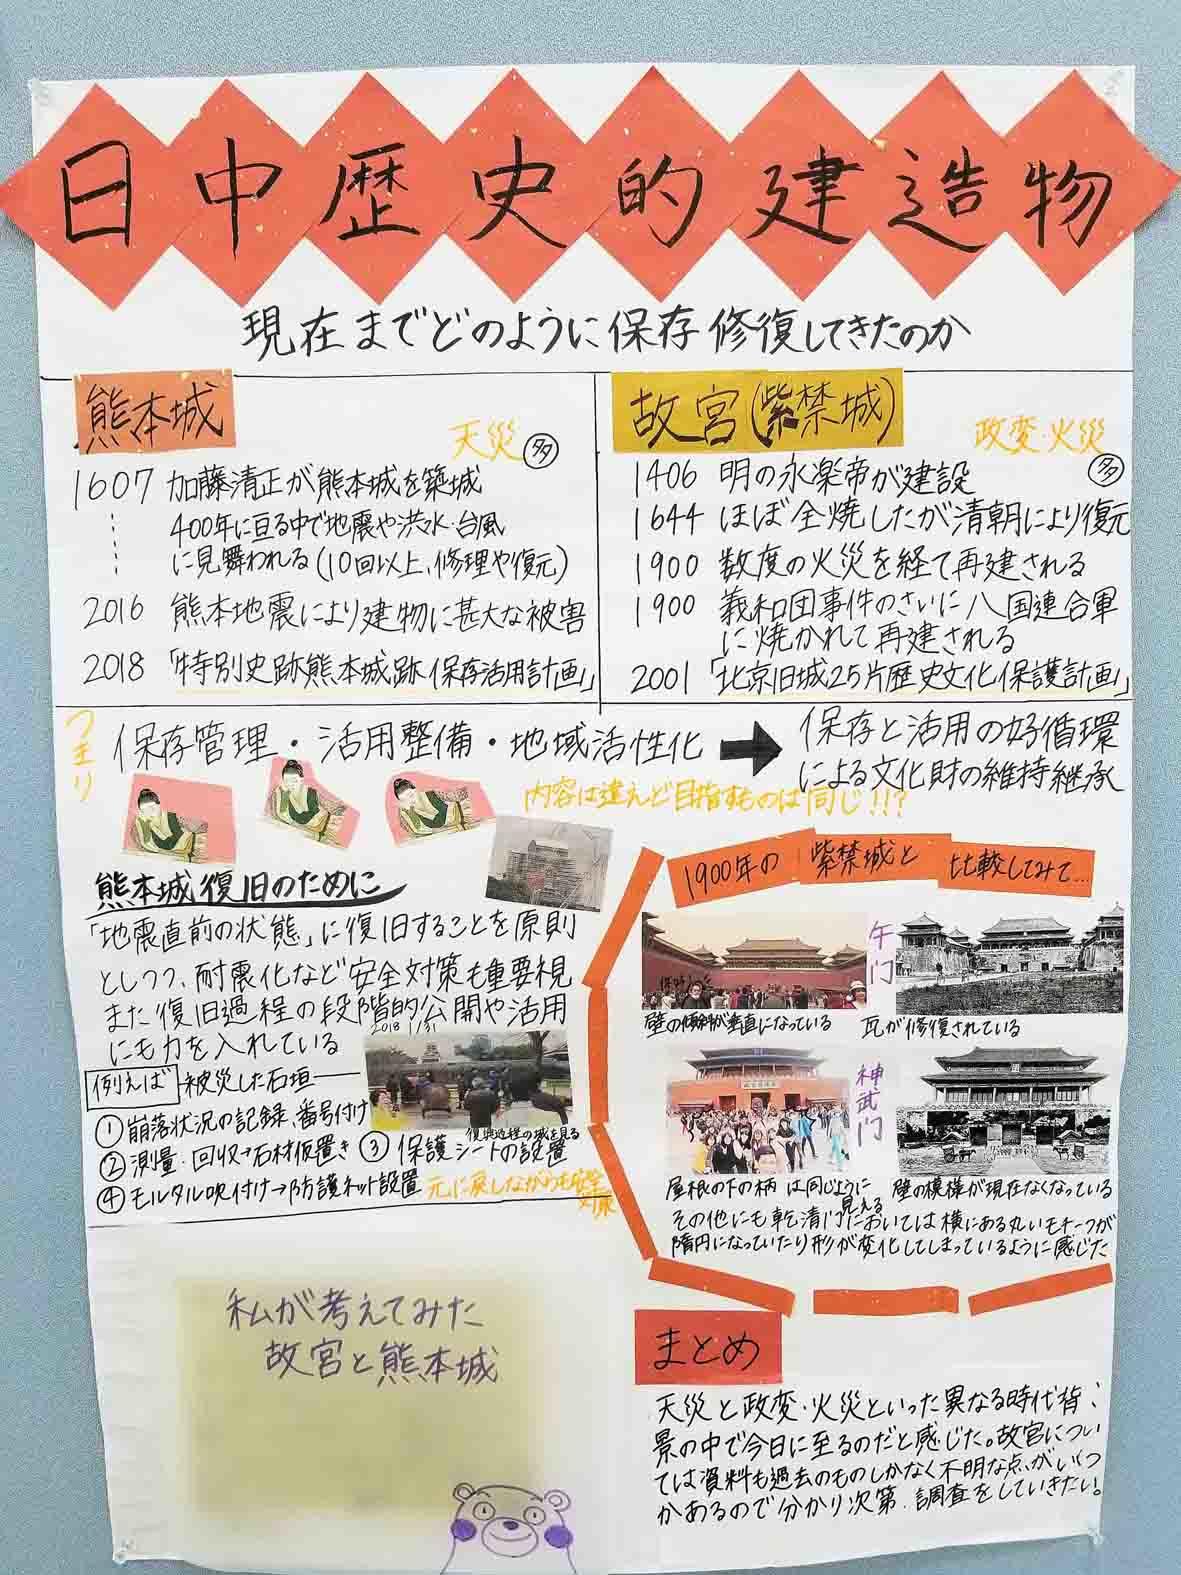 日中歴史的建造物
現在までどのように保存修復してきたのか
熊本城
天災 多
1607 加藤清正が熊本城を築城
400年に亘る中で地震や洪水・台風
に見舞われる(10回以上、修理や復元)
2016 熊本地震により建物に甚大な被害
2018 「特別史跡熊本城跡保存活用計画」
故宮(紫禁城)
政変・火災 多
1406 明の永楽帝が建設
1644 ほぼ全焼したが清朝により復元
1900 数度の火災を経て再建される
1900 義和団事件のさいに八国連合軍
に焼かれて再建される
2001 「北京旧城25片歴史文化保護計画」
つまり
保存管理・活用整備・地域活性化 → 保存と活用の好循環
による文化財の維持継承
内容は違えど目指すものは同じ!!?
熊本城復旧のために
「地震直前の状態」に復旧することを原則
としつつ、耐震化など安全対策も重要視
また復旧過程の段階的公開や活用
にも力を入れている
2018 1/31
復興過程の城を見る
例えば 被災した石垣――
① 崩落状況の記録、番号付け
② 測量・回収→石材仮置き ③ 保護シートの設置
④ モルタル吹付け→防護ネット設置
元に戻しながらも安全
対策
1900年の 紫禁城と 比較してみて…
午門
壁の傾斜が垂直になっている
瓦が修復されている
神武門
屋根の下の柄は同じように
見える
壁の模様が現在なくなっている
その他にも乾清門においては横にある丸いモチーフが
隋円になっていたり形が変化してしまっているように感じた
私が考えてみた
故宮と熊本城
まとめ
天災と政変・火災といった異なる時代背
景の中で今日に至るのだと感じた。故宮につい
ては資料も過去のものしかなく不明な点がいくつ
かあるので分かり次第、調査をしていきたい。